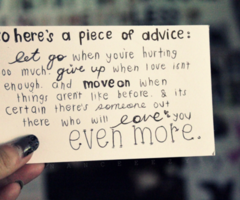 o here's a piece of advice:
let go when you're hurting
oo much. give up when love isnt
enough. and move on when
things arent like before. & its
certain there's someone out
there who will love you
even more.